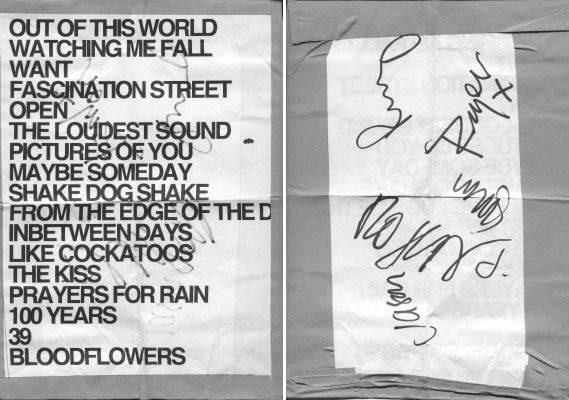 OUT OF THIS WORLD
WATCHING ME FALL
WANT
FASCINATION STREET
OPEN
THE LOUDEST SOUND
PICTURES OF YOU
MAYBE SOMEDAY
SHAKE DOG SHAKE
FROM THE EDGE OF THE D
INBETWEEN DAYS
LIKE COCKATOOS
THE KISS
PRAYERS FOR RAIN
100 YEARS
39
BLOODFLOWERS
Roger x
Simon
Jason